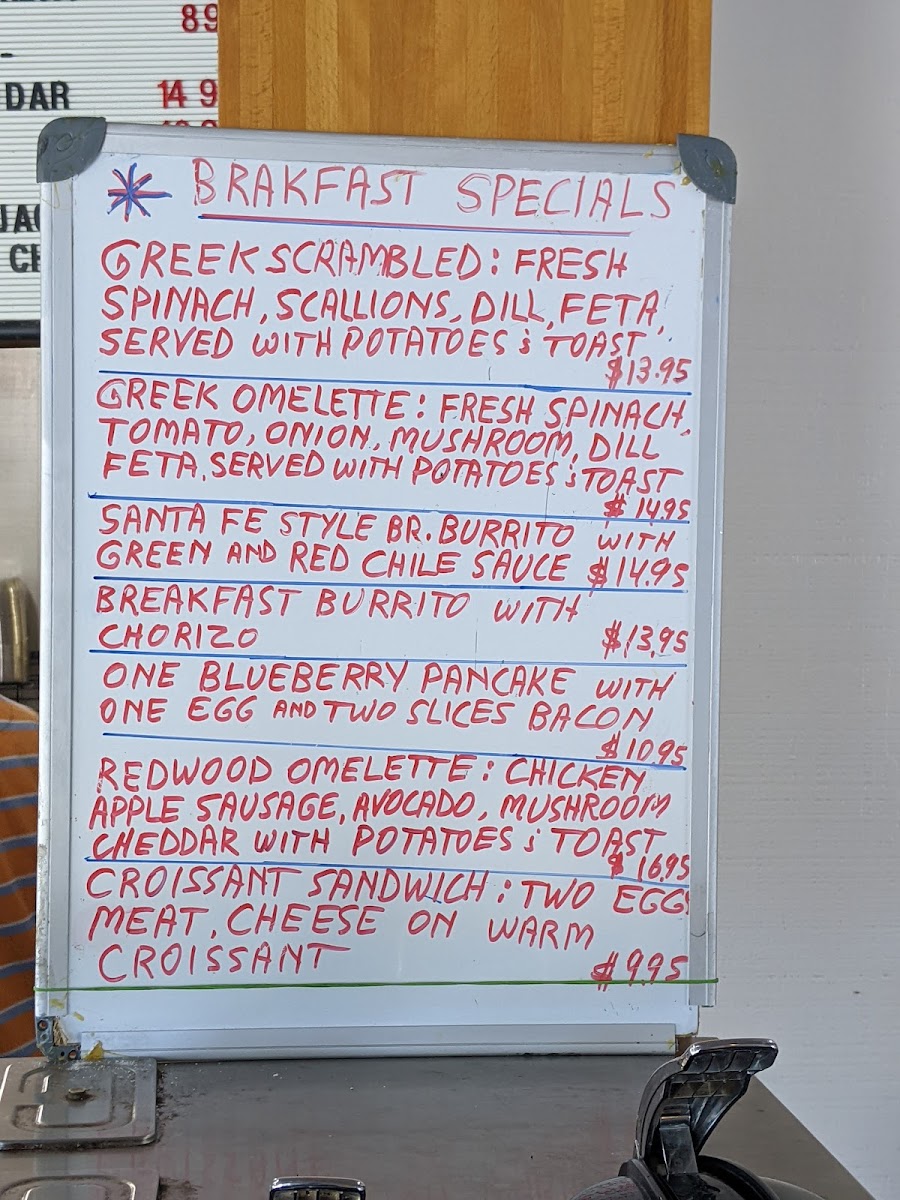 89
DAR 14 9
BRAKFAST SPECIALS
GREEK SCRAMBLED: FRESH
SPINACH, SCALLIONS, DILL, FETA,
SERVED WITH POTATOES & TOAST
$13.95
GREEK OMELETTE: FRESH SPINACH,
TOMATO, ONION, MUSHROOM, DILL
FETA, SERVED WITH POTATOES & TOAST
$14.95
SANTA FE STYLE BR. BURRITO WITH
GREEN AND RED CHILE SAUCE $14.95
BREAKFAST BURRITO WITH
CHORIZO $13.95
ONE BLUEBERRY PANCAKE WITH
ONE EGG AND TWO SLICES BACON
$10.95
REDWOOD OMELETTE: CHICKEN
APPLE SAUSAGE, AVOCADO, MUSHROOM
CHEDDAR WITH POTATOES & TOAST
$16.95
CROISSANT SANDWICH: TWO EGGS
MEAT, CHEESE ON WARM
CROISSANT $9.95